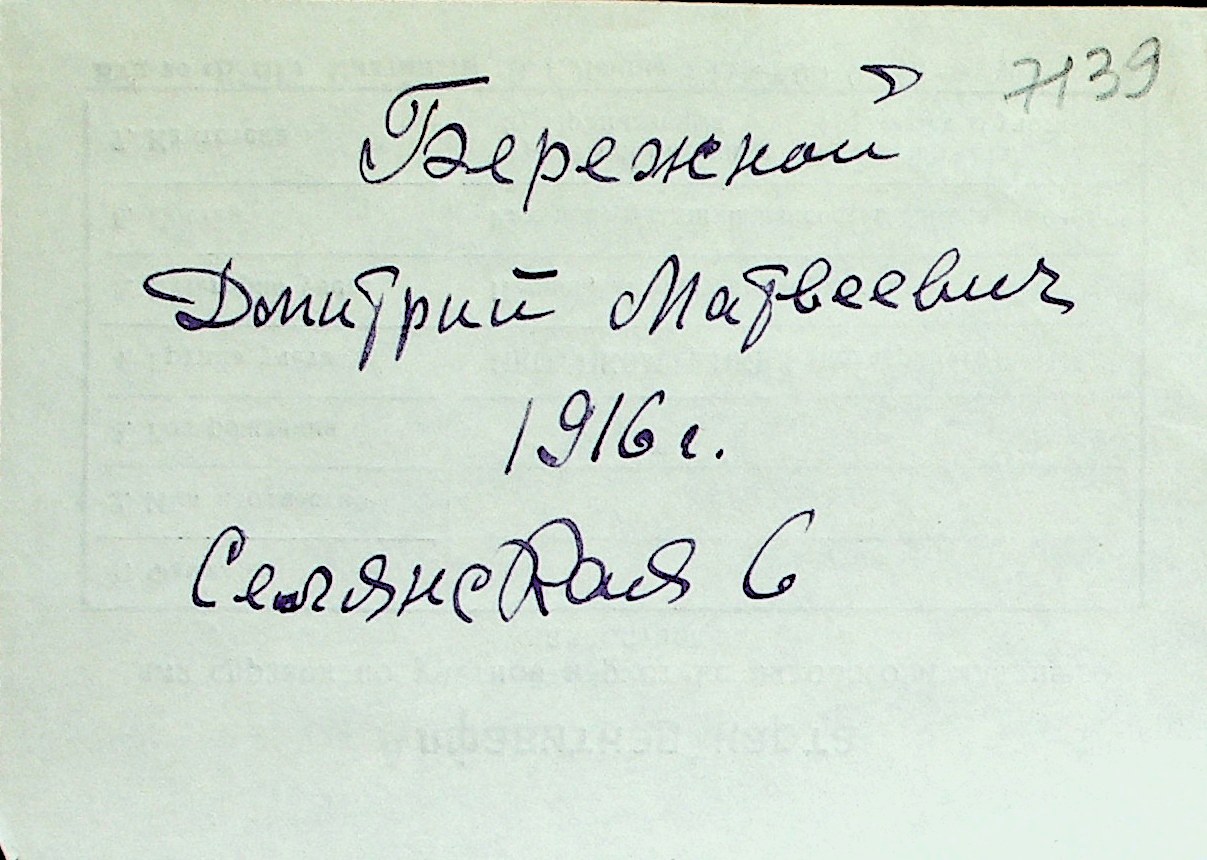 7139
Бережной
Дмитрий Матвеевич
1916 г.
Селянская 6